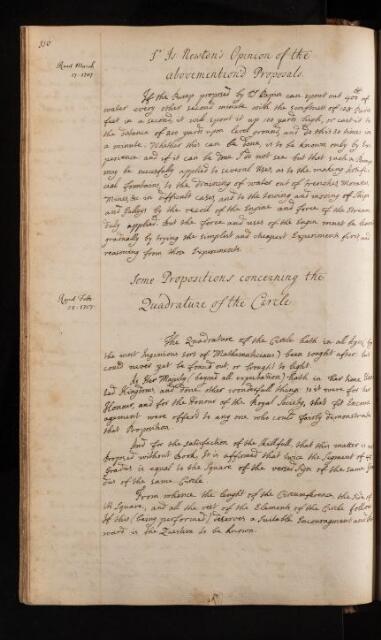 350
Read March
17. 1707
Sr Is Newton's Opinion of the
abovemention'd Proposals.
If the Pump proposed by Dr Papin can spout out 400
water every other second minute with the swiftness of 128
feet in a second, it will spout it up 100 yards high, or cast it to
the distance of 200 yards upon level ground, and do this 30 times in
a minute. Whether this can be done, is to be known only by Ex-
perience and if it can be done I do not see but that such a Pump
may be successfully applied to several Uses, as to the making Artifi-
cial Fountains, to the Draining of water out of Trenches, Morasses,
Mines, &c in difficult cases, and to the towing and moving of Ships
and Galleys by the recoil of the Engine and force of the Stream
duly applied. But the force and uses of the Engin must be learnt
gradually by trying the simplest and cheapest Experiments first, and
reasoning from those Experiments.
Some Propositions concerning the
Quadrature of the Circle
Read Febr.
1707.
The Quadrature of the Circle hath in all Ages, by
the most Ingenious sort of Mathematicians been sought after but
could never yet be found out, or brought to light.
As Her Majesty (beyond all expectation) hath in her Reign
Kingdoms, and done other wonderfull things so it were for her
Honour, and for the honour of the Royal Society, that fit Encour-
agement were offer'd to any one who could fairly demonstrate
that Proposition.
And for the satisfaction of the skilfull, that this matter is not
proposed without book, It is affirmed that twice the Segment of
Gradus is equal to the Square of the versed sign of the same
out of the same Circle
From whence the lenght of the Circumference, the Side of
its Square, and all the rest of the Elements of the Circle follow
If this (being performed) deserves a Suitable Encouragement and
ward is the Question to be known.